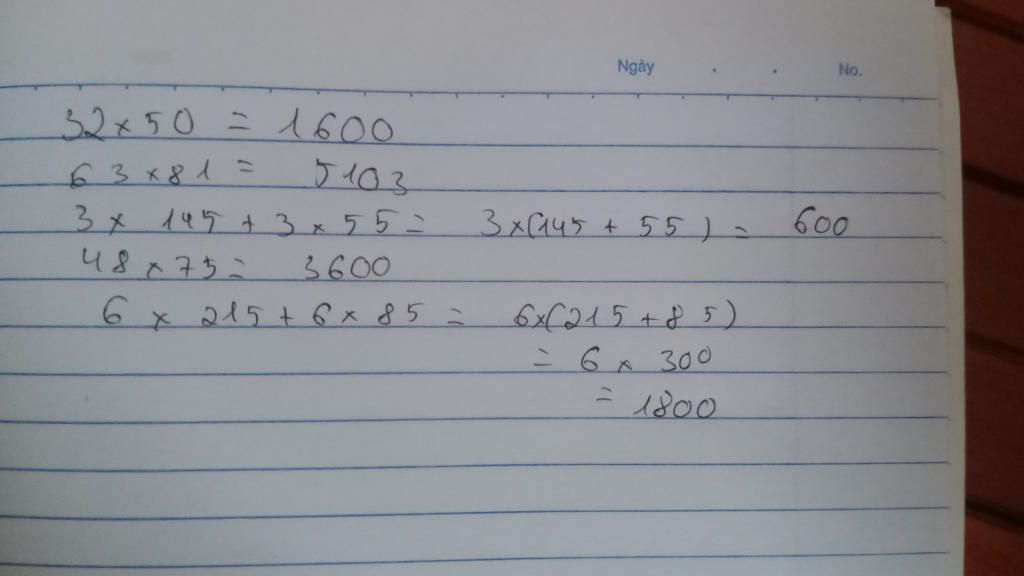 Ngày . . No.
32 × 50 = 1600
63 × 81 = 5103
3 × 145 + 3 × 55 = 3×(145 + 55) = 600
48 × 75 = 3600
6 × 215 + 6 × 85 = 6×(215 + 85)
= 6 × 300
= 1800